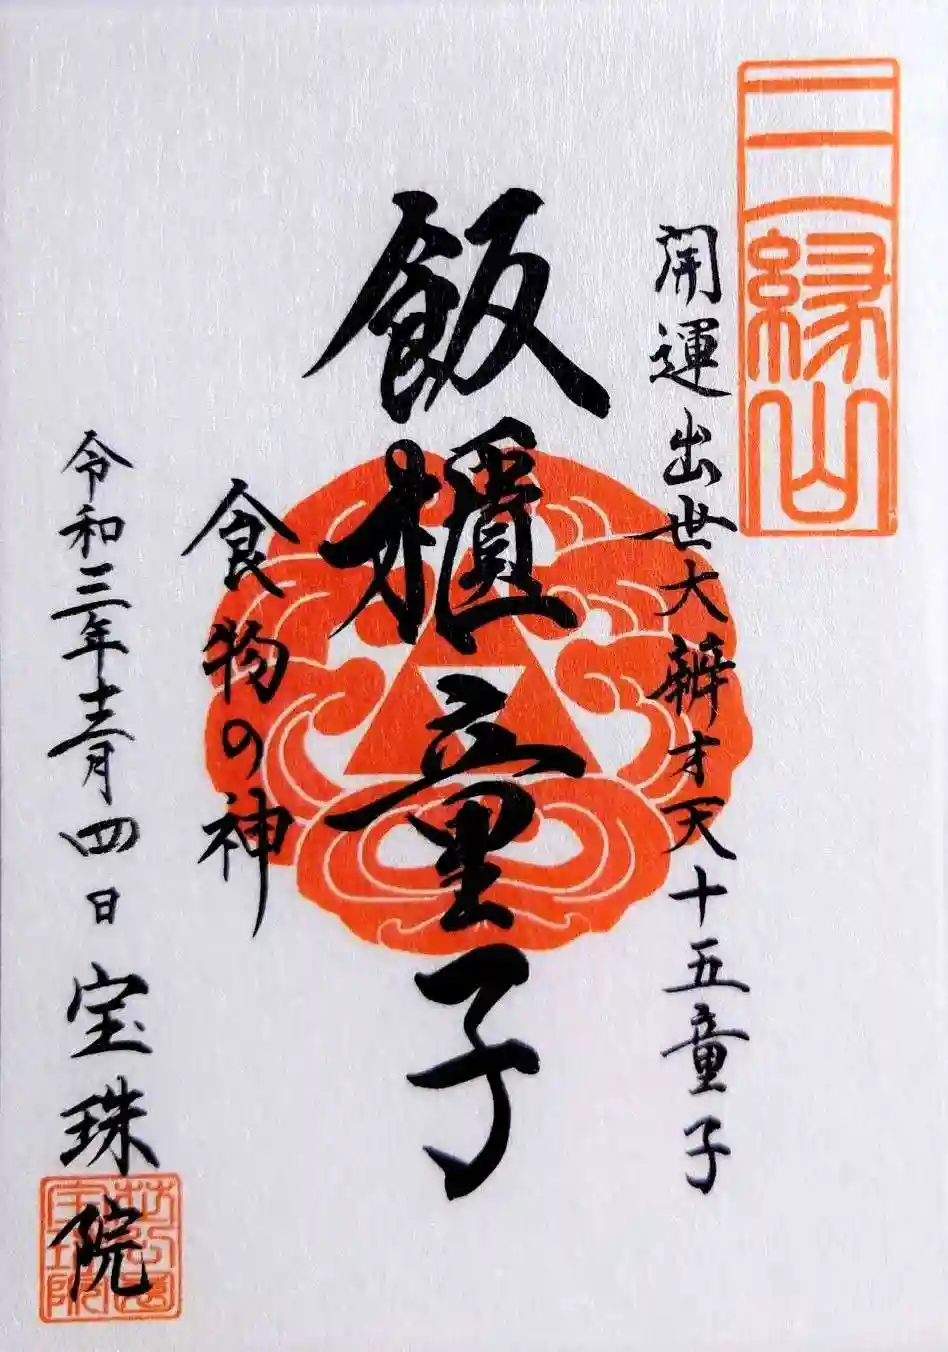 三縁山
開運出世大辨才天十五童子
飯櫃童子
食物の神
令和三年十二月四日 宝珠院
芝公園
宝珠院